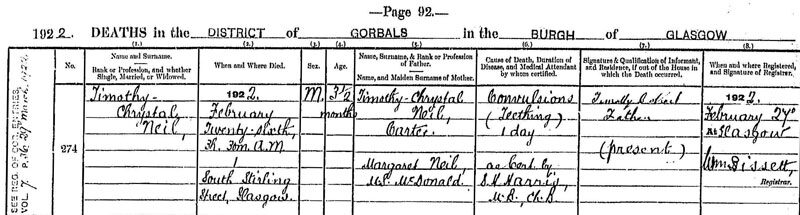 —Page 92.—
1922. DEATHS in the DISTRICT of GORBALS in the BURGH of GLASGOW
(1.) (2.) (3.) (4.) (5.) (6.) (7.) (8.)
No.
Name and Surname.
Rank or Profession, and whether Single, Married, or Widowed.
When and Where Died.
Sex.
Age.
Name, Surname, & Rank or Profession of Father.
Name, and Maiden Surname of Mother.
Cause of Death, Duration of Disease, and Medical Attendant by whom certified.
Signature & Qualification of Informant, and Residence, if out of the House in which the Death occurred.
When and where Registered, and Signature of Registrar.
274
Timothy-
Chrystal
Neil,
1922.
February
Twenty-sixth,
M.
3½
months
Timothy-Chrystal
Neil,
Carter
Margaret Neil,
M.S. McDonald.
1
South Stirling
Street, Glasgow.
Convulsions
(Teething)
1 day
as Cert. by
S. H. Harris,
M.B., Ch.B.
Father
(present)
1922.
February 27th
At Glasgow
Wm Bissett,
Registrar.
SEE REG. OF COR. ENTRIES,
VOL. 7 p. 36 29th March, 1922.